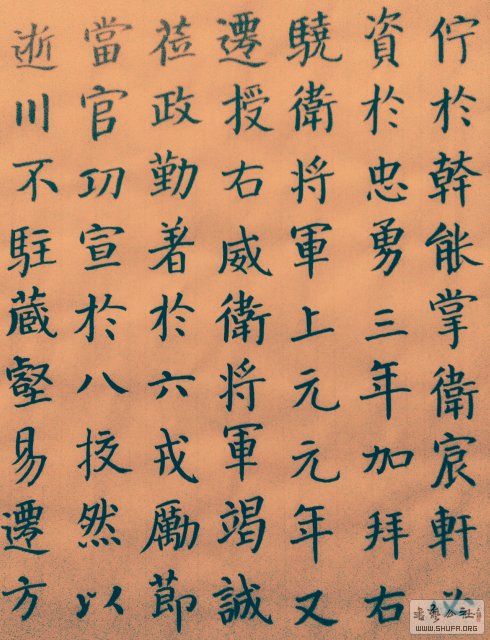 佇於幹能掌衛宸軒
資於忠勇三年加拜右
驍衛将軍上元元年又
遷授右威衛将軍竭誠
莅政勤著於六戎勵節
當官功宣於八挍然以
逝川不駐蔵壑易遷方
WWW.SHUFA.ORG